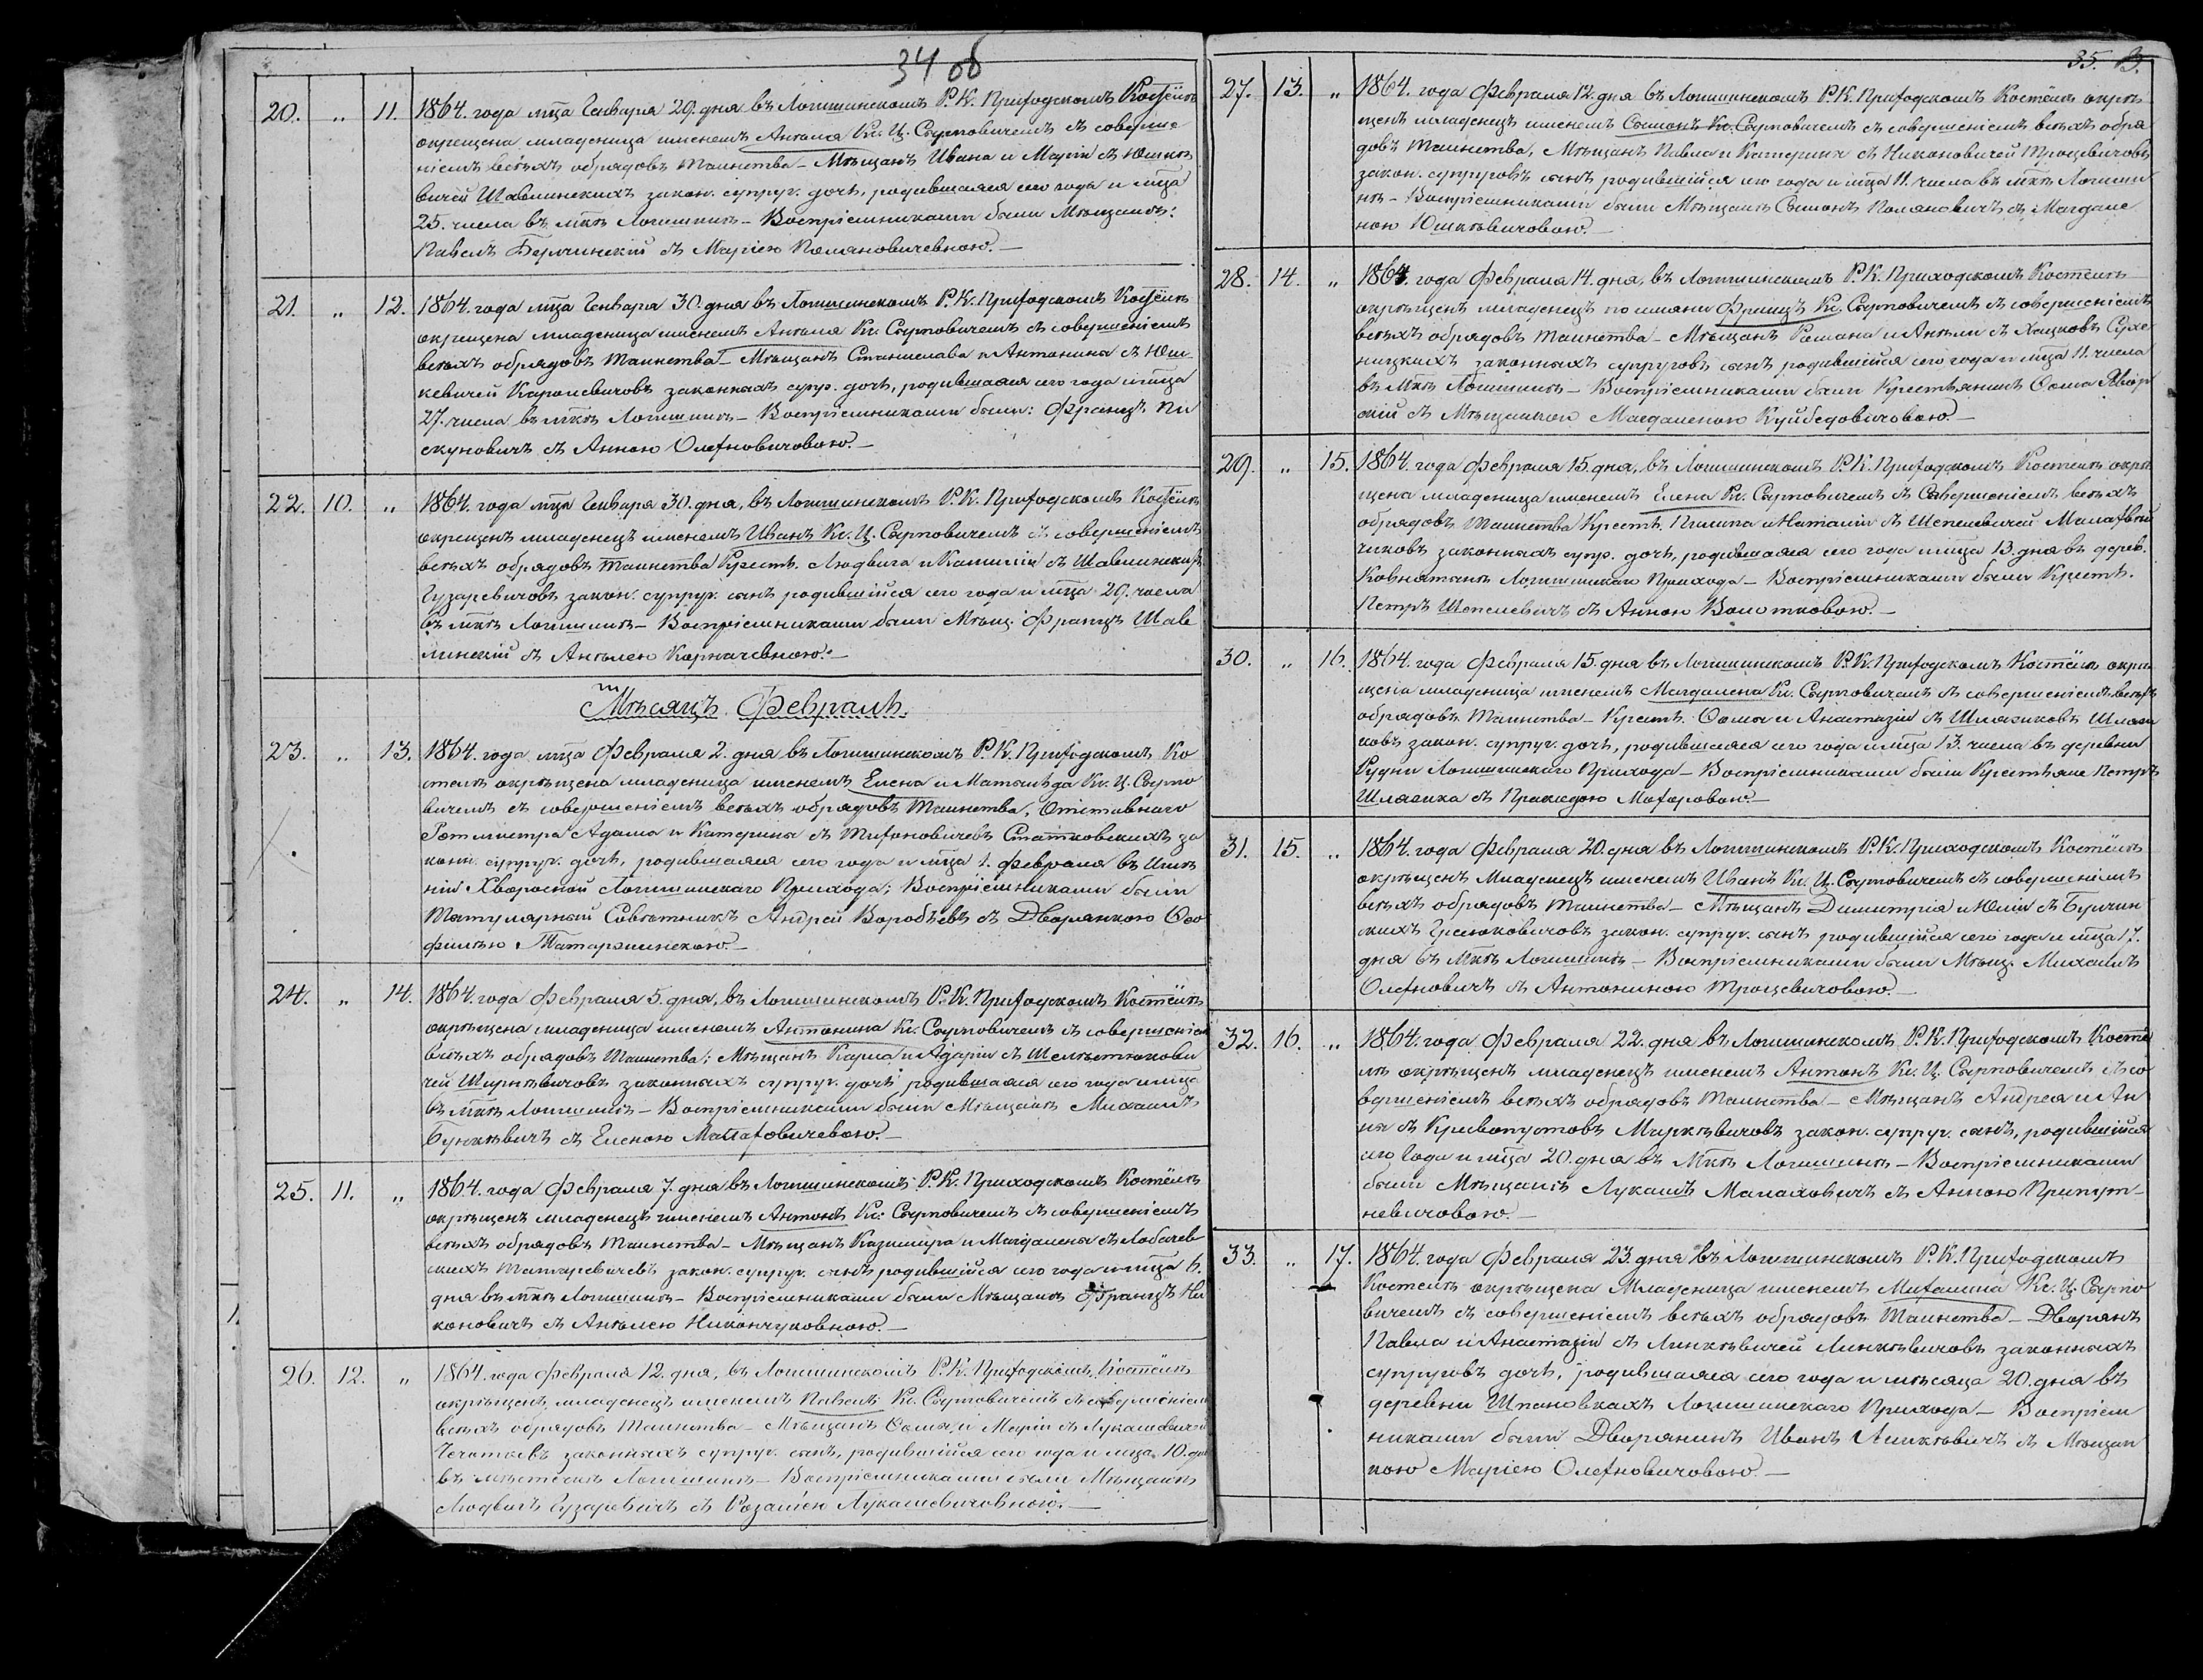 34 об
20. „ 11. 1864. года мца Генваря 29. дня въ Логишинскомъ Р.К. Приходскомъ Костёлѣ
окрещена младеница именемъ Антоля Кс. Ц. Сырповичемъ съ соверше
ніемъ всѣхъ обрядовъ таинства – Мѣщанъ Ивана и Маріи съ Юшкѣ
вичей Шавлинскихъ закон. супруг. дочь, родившаяся сего года и мца
25. числа въ мкѣ Логишинѣ – Воспріемниками были Мѣщанѣ:
Павелъ Бержинскій съ Маріею Поляновичевною. –
21. „ 12. 1864. года мца Генваря 30. дня въ Логишинскомъ Р.К. Приходскомъ Костёлѣ
окрещена младеница именемъ Ангеля Кс. Сырповичемъ съ совершеніемъ
всѣхъ обрядовъ таинства – Мѣщанъ Станислава и Антонины съ Юш
кевичей Каролевичовъ законныхъ супр. дочь, родившаяся сего года и мца
27. числа въ мкѣ Логишинѣ – Воспріемниками были: Францъ Пи
скуновичъ съ Анною Олехновичовою. –
22. 10. „ 1864. года мца Генваря 30. дня, въ Логишинскомъ Р.К. Приходскомъ Костёлѣ
окрещенъ младенецъ именемъ Иванъ Кс. Ц. Сырповичемъ съ совершеніемъ
всѣхъ обрядовъ таинства Крест. Людвига и Камиліи съ Шавлинскихъ
Гузаревичовъ закон. супруг. сынъ родившійся сего года и мца 29. числа
въ мкѣ Логишинѣ – Воспріемниками были Мѣщ. Францъ Шав
линскій съ Ангелею Корначевною. –
Мѣсяцъ Февраль.
23. „ 13. 1864. года мца Февраля 2. дня въ Логишинскомъ Р.К. Приходскомъ Ко
стелѣ окрѣщена младеница именемъ Елена и Матильда Кс. Ц. Сырпо
вичемъ съ совершеніемъ всѣхъ обрядовъ Таинства, Отставнаго
Ротмистра Адама и Катерины съ Тихоновичевъ Статковскихъ за
конн. супруг. дочь, родившаяся сего года и мца 1. февраля въ Имѣ
ніи Хворосной Логишинскаго Прихода; Воспріемниками были
Титулярный Совѣтникъ Андрей Воробьевъ съ Дворянкою Ѳео
филею Татаржинскою. –
24. „ 14. 1864. года Февраля 5. дня, въ Логишинскомъ Р.К. Приходскомъ Костёлѣ
окрѣщена младеница именемъ Антонина Кс. Сырповичемъ съ совершеніем
всѣхъ обрядовъ Таинства; Мѣщанъ Карла и Адаріи съ Шелѣстюкови
чей Ширкѣвичовъ законныхъ супруг. дочь родившаяся сего года и мца
въ мкѣ Логишинѣ – Воспріемниками были Мѣщанѣ Михаилъ
Бункѣвичъ съ Еленою Малаховичевою. –
25. 11. „ 1864. года Февраля 7. дня въ Логишинскомъ Р.К. Приходскомъ Костёлѣ
окрѣщенъ младенецъ именемъ Антонъ Кс. Сырповичемъ съ совершеніемъ
всѣхъ обрядовъ Таинства – Мѣщанъ Казимира и Магдалены съ Лобачев
скихъ Титкревичевъ закон. супруг. сынъ родившійся сего года и мца 6.
дня въ мкѣ Логишинѣ – Воспріемниками были Мѣщанѣ Францъ Ни
коновичъ съ Ангелею Никончуковною. –
26. 12. „ 1864. года Февраля 12. дня, въ Логишинскомъ Р.К. Приходскомъ Костёлѣ
окрѣщенъ младенецъ именемъ Павелъ Кс. Сырповичемъ съ совершеніем
всѣхъ обрядовъ Таинства – Мѣщанъ Ѳомы и Маріи съ Лукашевичей
Чечотковъ законныхъ супруг. сынъ, родившійся сего года и мца 10. дня
въ мѣстечкѣ Логишинѣ – Воспріемниками были Мѣщанѣ
Людвигъ Гузаревичъ съ Розаліею Лукашевичовною. –
35. В.
27. 13. „ 1864. года Февраля 12. дня въ Логишинскомъ Р.К. Приходскомъ Костёлѣ окрѣ
щенъ младенецъ именемъ Сымонъ Кс. Сырповичемъ съ совершеніемъ всѣхъ обря
довъ Таинства, Мѣщанъ Павла и Катерины съ Никоновичей Троцевичовъ
закон. супруговъ сынъ родившійся сего года и мца 11. числа въ мкѣ Логиши
нѣ – Воспріемниками были Мѣщанѣ Сымонъ Поляновичъ съ Магдале
ною Юшкѣвичовою. –
28. 14. „ 1864. года Февраля 14. дня, въ Логишинскомъ Р.К. Приходскомъ Костёлѣ
окрѣщенъ младенецъ по имяни Францъ Кс. Сырповичемъ съ совершеніемъ
всѣхъ обрядовъ Таинства – Мѣщанъ Романа и Ангели съ Хацковъ Сухо
ницкихъ законныхъ супруговъ сынъ родившійся сего года и мца 11. числа
въ Мкѣ Логишинѣ – Воспріемниками были Крестьянинъ Ѳома Явор
скій съ Мѣщанкою Магдаленою Куйбедовичовою. –
29. „ 15. 1864. года Февраля 15. дня, въ Логишинскомъ Р.К. Приходскомъ Костелѣ окрѣ
щена младеница именемъ Елена Кс. Сырповичемъ съ Совершеніемъ всѣхъ
обрядовъ Таинства Крест. Филипа и Наталіи съ Шепелевичей Малахвей
чиковъ законныхъ супр. дочь, родившаяся сего года и мца 13. дня въ дерев.
Ковнятинѣ Логишинскаго Прихода – Воспріемниками были Крест.
Петръ Шепелевичъ съ Анною Болотковою. –
30. „ 16. 1864. года Февраля 15. дня въ Логишинскомъ Р.К. Приходскомъ Костёлѣ окрѣ
щена младеница именемъ Магдалена Кс. Сырповичемъ съ совершеніемъ всѣхъ
обрядовъ Таинства – Крест. Ѳомы и Анастазіи съ Шляжиковъ Шляжи
ковъ закон. супруг. дочь, родившаяся сего года и мца 13. числа въ деревни
Рудни Логишинскаго Прихода – Воспріемниками были Крестьяне Петръ
Шляжика съ Пракседою Махоровою. –
31. 15. „ 1864. года Февраля 20. дня въ Логишинскомъ Р.К. Приходскомъ Костёлѣ
окрѣщенъ Младенецъ именемъ Иванъ Кс. Ц. Сырповичемъ съ совершеніемъ
всѣхъ обрядовъ Таинства – Мѣщанъ Димитрія и Юліи съ Бучин
скихъ Гресюковичовъ закон. супруг. сынъ родившійся сего года и мца 17.
дня въ Мкѣ Логишинѣ – Воспріемниками были Мѣщ. Михаилъ
Олехновичъ съ Антониною Троцевичовою. –
32. 16. „ 1864. года Февраля 22. дня въ Логишинскомъ Р.К. Приходскомъ Костё
лѣ окрѣщенъ младенецъ именемъ Антонъ Кс. Ц. Сырповичемъ съ со
вершеніемъ всѣхъ обрядовъ Таинства – Мѣщанъ Андрея и Ан
ны съ Кривопустовъ Маркѣвичовъ закон. супруг. сынъ, родившійся
сего года и мца 20. дня въ Мкѣ Логишинѣ – Воспріемниками
были Мѣщанѣ Лукашъ Малаховичъ съ Анною Припут
невичовою. –
33. „ 17. 1864. года Февраля 23. дня въ Логишинскомъ Р.К. Приходскомъ
Костелѣ окрѣщена Младеница именемъ Михалина Кс. Ц. Сырпо
вичемъ съ совершеніемъ всѣхъ обрядовъ Таинства – Дворянъ
Павла и Анастазіи съ Линкѣвичей Линкѣвичовъ законныхъ
супруговъ дочь, родившаяся сего года и мѣсяца 20. дня въ
деревни Шпановкахъ Логишинскаго Прихода – Воспріем
никами были Дворянинъ Иванъ Линкѣвичъ съ Мѣщан
кою Маріею Олехновичовою. –